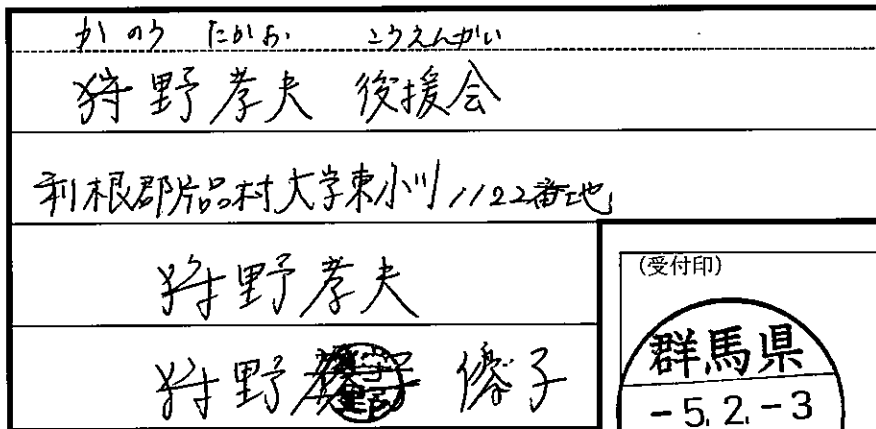 かのう たかお こうえんかい
狩野孝夫 後援会
利根郡片品村大字東小川1122番地
狩野孝夫
狩野 子
(受付印)
群馬県
-5.2.-3